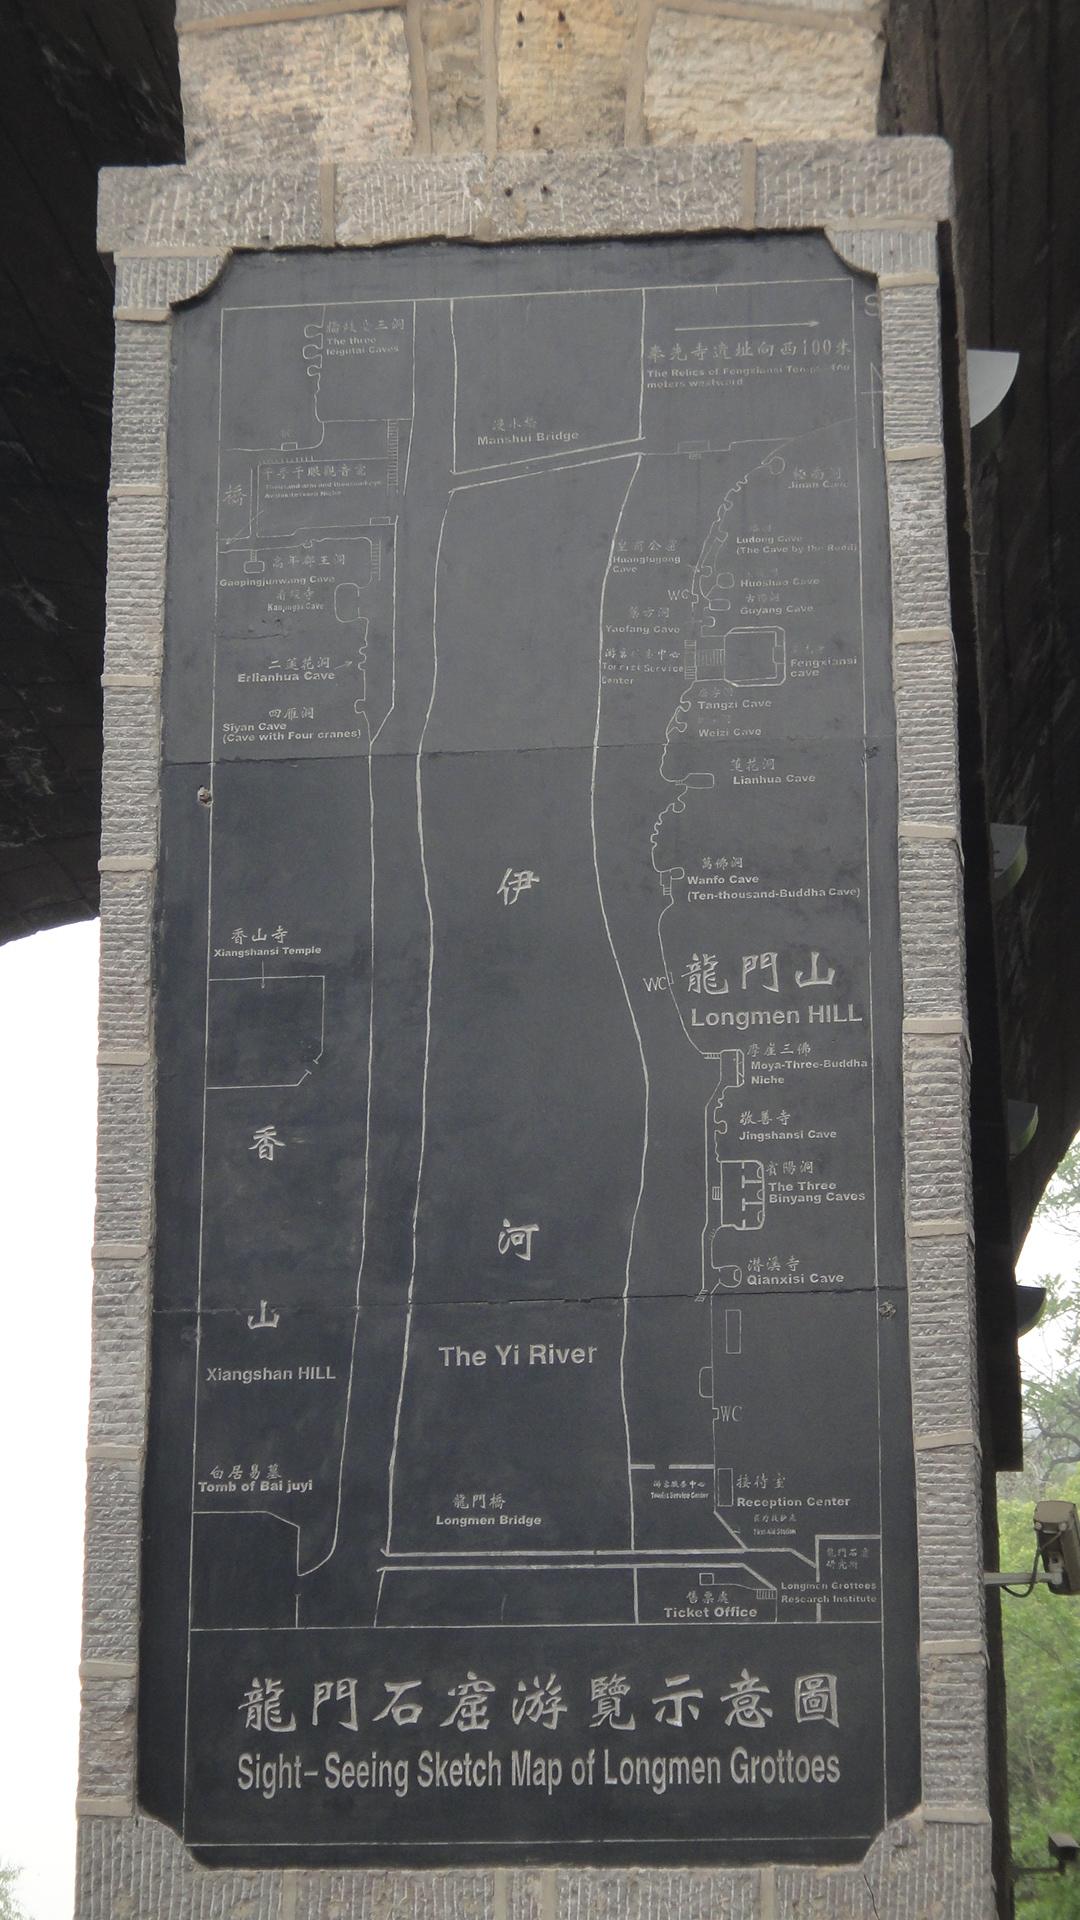 三洞
The three
Teigutai Caves
奉先寺遺址向西100米
The Relics of Fengxiansi Temple 100
meters westward
S
漫水橋
Manshui Bridge
千手千眼觀音龕
Thousand-arm and thousand-eye
Avalokitesvara Niche
橋
極南洞
Jinan Cave
Ludong Cave
(The Cave by the Road)
皇甫公窟
Huangfugong
Cave
高平郡王洞
Gaopingjunwang Cave
看經寺
Kanjingsi Cave
Huoshao Cave
WC
古陽洞
Guyang Cave
藥方洞
Yaofang Cave
游客服務中心
Tourist Service
Center
Fengxiansi
cave
二蓮花洞
Erlianhua Cave
唐字洞
Tangzi Cave
四雁洞
Siyan Cave
(Cave with Four cranes)
Weizi Cave
蓮花洞
Lianhua Cave
萬佛洞
Wanfo Cave
(Ten-thousand-Buddha Cave)
伊
香山寺
Xiangshansi Temple
WC
龍門山
Longmen HILL
摩崖三佛
Moya-Three-Buddha
Niche
敬善寺
Jingshansi Cave
香
賓陽洞
The Three
Binyang Caves
河
潜溪寺
Qianxisi Cave
山
The Yi River
Xiangshan HILL
WC
白居易墓
Tomb of Bai juyi
游客服務中心
Tourist Service Center
接待室
Reception Center
龍門橋
Longmen Bridge
医疗救护点
First-Aid Station
龍門石窟
研究所
Longmen Grottoes
Research Institute
售票處
Ticket Office
龍門石窟游覽示意圖
Sight-Seeing Sketch Map of Longmen Grottoes